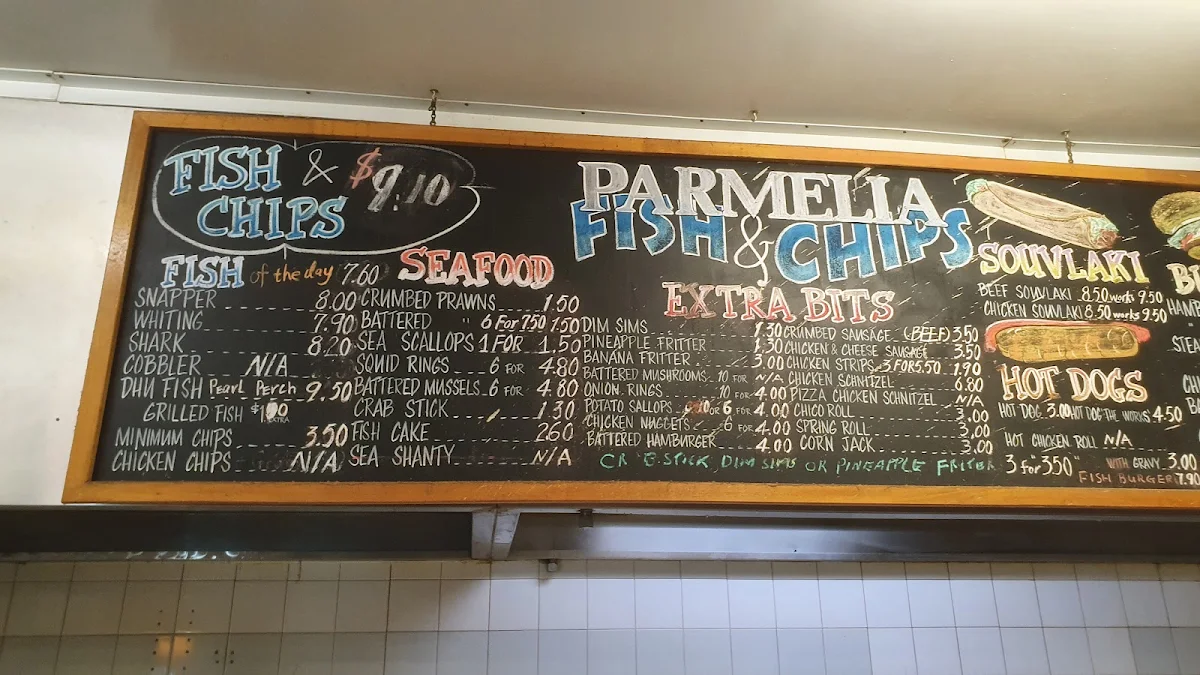 FISH & $9.10
CHIPS
FISH of the day 7.60
SNAPPER 8.00
WHITING 7.90
SHARK 8.20
COBBLER N/A
DHU FISH Pearl Perch 9.50
GRILLED FISH EXTRA
MINIMUM CHIPS 3.50
CHICKEN CHIPS N/A
SEAFOOD
CRUMBED PRAWNS 1.50
BATTERED " 6 For 7.50 1.50
SEA SCALLOPS 1 FOR 1.50
SQUID RINGS 6 FOR 4.80
BATTERED MUSSELS 6 FOR 4.80
CRAB STICK 1.30
FISH CAKE 2.60
SEA SHANTY N/A
PARMELIA
FISH & CHIPS
EXTRA BITS
DIM SIMS 1.30
PINEAPPLE FRITTER 1.30
BANANA FRITTER 3.00
BATTERED MUSHROOMS 10 FOR N/A
ONION RINGS 10 FOR 4.00
POTATO SALLOPS OR 6 FOR 4.00
CHICKEN NUGGETS 6 FOR 4.00
BATTERED HAMBURGER 4.00
CRUMBED SAUSAGE (BEEF) 3.50
CHICKEN & CHEESE SAUSAGE 3.50
CHICKEN STRIPS 3 FOR 5.50 1.90
CHICKEN SCHNITZEL 6.80
PIZZA CHICKEN SCHNITZEL N/A
CHICO ROLL 3.00
SPRING ROLL 3.00
CORN JACK 3.00
STICK, DIM SIMS OR PINEAPPLE FRITER 3 for "3.50"
SOUVLAKI
BEEF SOUVLAKI 8.50 works 9.50
CHICKEN SOUVLAKI 8.50 works 9.50
HOT DOGS
HOT DOG 3.00 HOT DOG 'THE WORKS' 4.50
HOT CHICKEN ROLL N/A
WITH GRAVY 3.00
FISH BURGER 7.90